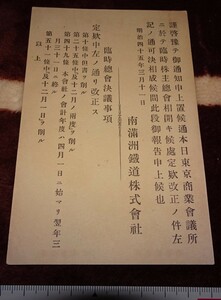 謹啓豫テ御通知申上置候通本日東京商業會議所
ニ於テ臨時株主總會相開キ候處定欵改正ノ件左
記ノ通可決相成候間此段御報告申上候也
明治四十五年三月一日
南滿洲鐵道株式會社
臨時總會決議事項
定欵中左ノ通リ改正ス
第十條中但書ヲ削ル
第二十五條中及十二月ノ五字ヲ削ル
第四十九條 本會社ノ會計年度ハ四月一日ニ始マリ翌年三
月三十一日ニ終ル
第五十一條中及十二月一日ヲ削ル
以上